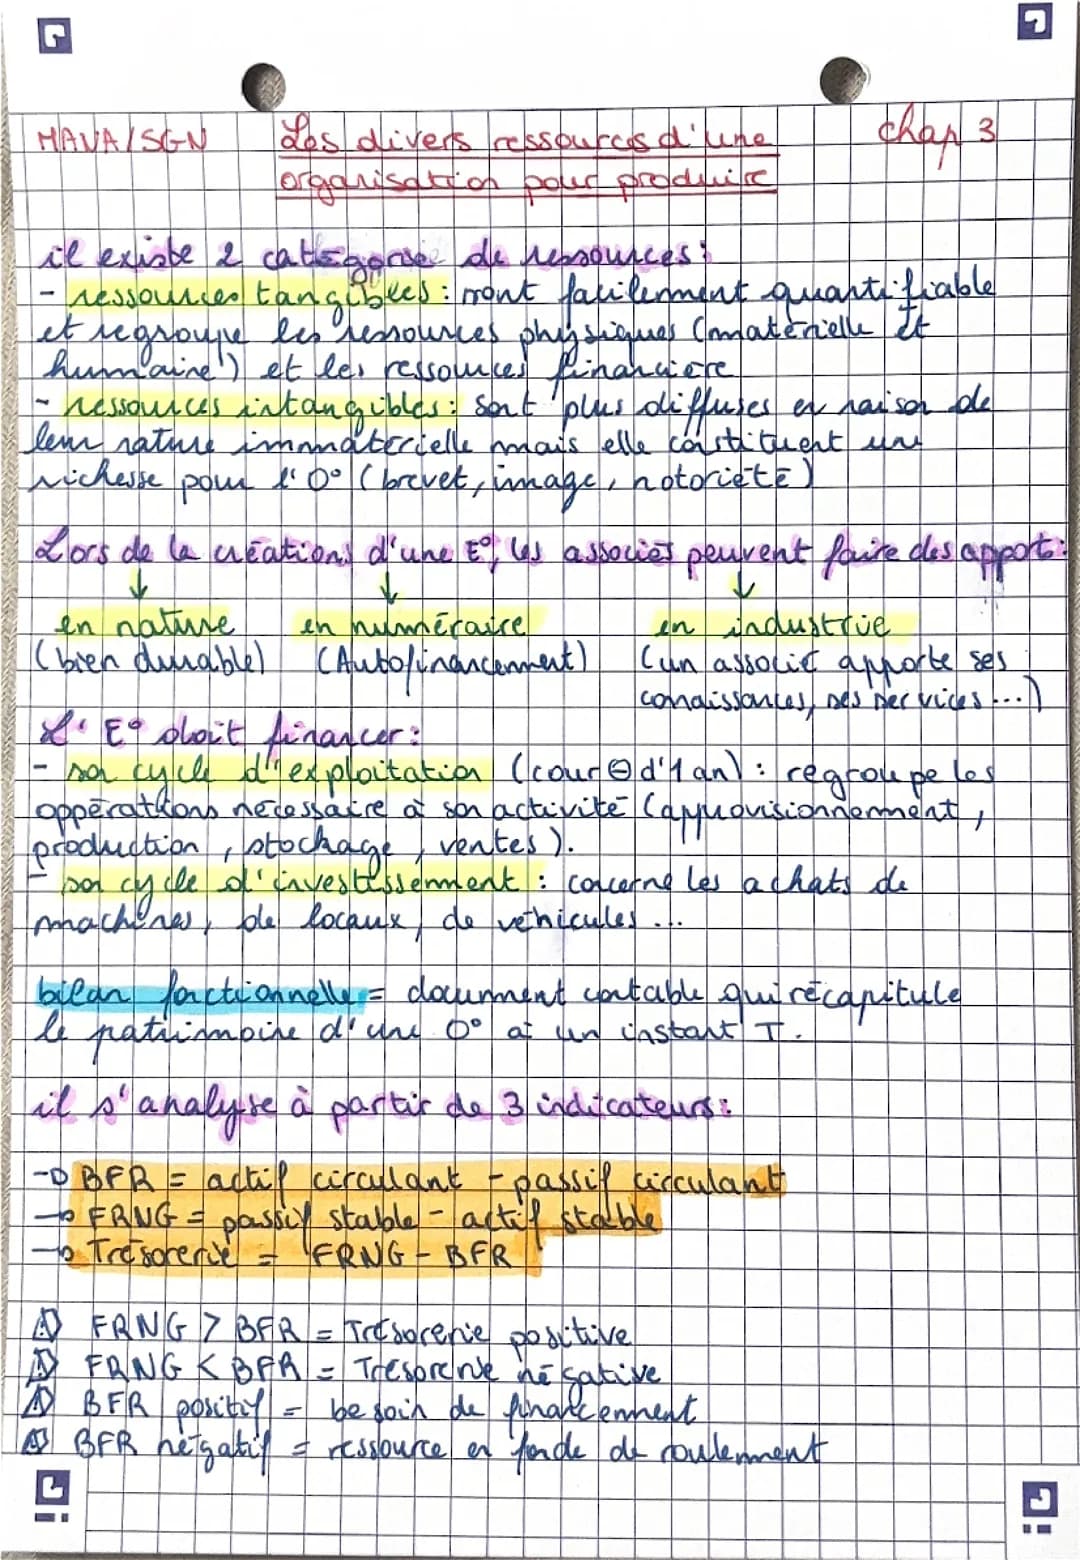 MANA/SGN Les divers ressources d'une chap 3
organisation pour produire
il existe 2 catégorie de ressources :
- ressources tangibles : sont facilement quantifiable
et regroupe les ressources physiques (matérielle et
humaine) et les ressources financière
- ressources intangibles : sont plus diffuses en raison de
leur nature immatérielle mais elle constituent une
richesse pour l'O° (brevet, image, notoriété)
Lors de la créations d'une E°, les associés peuvent faire des apport :
↓ ↓ ↓
en nature en numéraire en industrie
(bien durable) (Autofinancement) (un associé apporte ses
connaissances, ses services ...)
L'E° doit financer :
- son cycle d'exploitation (cour ⊖ d'1 an) : regroupe les
oppérations nécessaire à son activité (approvisionnement,
production, stockage, ventes).
- son cycle d'investissement : concerne les achats de
machines, de locaux, de véhicules ...
bilan fonctionnelle = document contable qui récapitule
le patrimoine d'une O° à un instant T.
il s'analyse à partir de 3 indicateurs :
→ BFR = actif circulant - passif circulant
→ FRNG = passif stable - actif stable
→ Trésorerie = FRNG - BFR
⚠ FRNG > BFR = Trésorerie positive
⚠ FRNG < BFR = Trésorerie négative
⚠ BFR positif = besoin de financement
⚠ BFR négatif = ressource en fonde de roulement